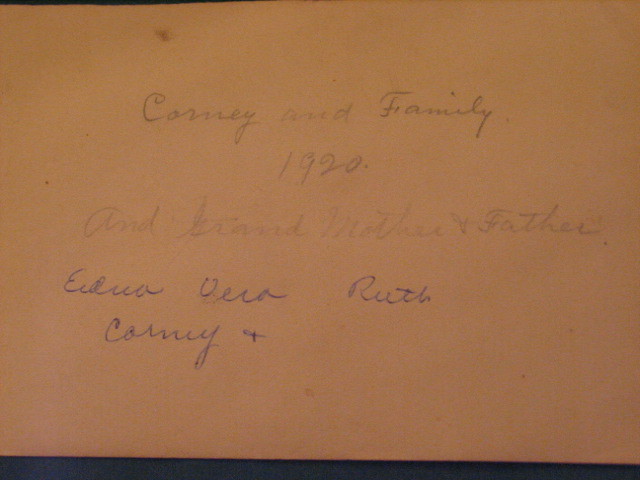 Corney and Family.
1920.
And Grand Mother & Father.
Edna Vera Ruth
Corney +